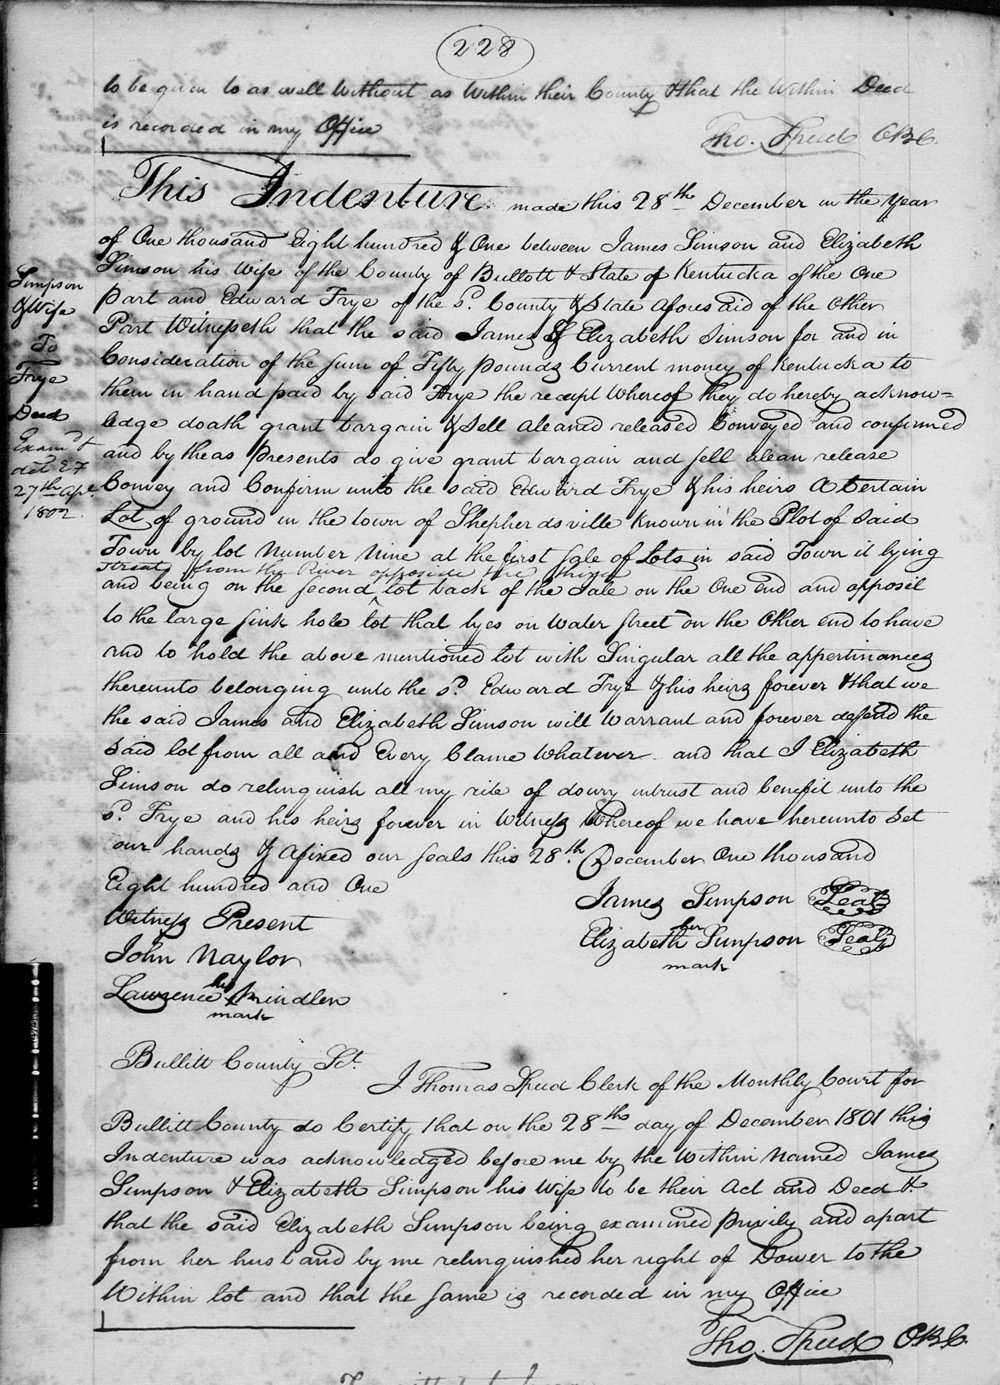 228
to be given to as well without as within their County & that the within Deed
is recorded in my Office
Tho. Speed CBC
This Indenture made this 28th December in the Year
of One thousand Eight hundred & One between James Simson and Elizabeth
Simson his Wife of the County of Bullott & State of Kentucka of the One
part and Edward Frye of the sd. County & State aforesaid of the Other
Part Witnesseth that the said James & Elizabeth Simson for and in
Consideration of the sum of Fifty pounds Current money of Kentucka to
them in hand paid by said Frye the receipt whereof they do hereby acknow=
ledge doath grant bargain & sell aleaned released Conveyed and confirmed
and by theas presents do give grant bargain and sell alean release
Convey and Confirm unto the said Edward Frye & his heirs A Certain
Lot of ground in the town of Shepherdsville Known in the Plot of said
Town by lot Number Nine at the first Sale of Lots in said Town it lying
Street from the River opposide the
and being on the second ^ lot back of the Sale on the One end and apposit
to the large sink hole lot that lyes on Water Street on the Other end to have
and to hold the above mentioned lot with Singular all the appertinances
thereunto belonging unto the sd. Edward Frye & his heirs forever & that we
the said James and Elizabeth Simson will Warrant and forever defend the
said lot from all and Every Clame Whatever and that I Elizabeth
Simson do relinquish all my rite of dowry intrust and benefit unto the
sd. Frye and his heirs forever in Witness Whereof we have hereunto set
our hands & afixed our seals this 28th. December One thousand
Eight hundred and One
James Simpson Seal
Witness Present
her
Elizabeth Simpson Seal
mark
John Naylor
his
Lawrence
mark
Simpson
& Wife
To
Frye
Deed
Exam'd &
del E F
27th Apl.
1802
Bullitt County Sct.
I Thomas Speed Clerk of the Monthly Court for
Bullitt County do Certify that on the 28th day of December 1801 this
Indenture was acknowledged before me by the within named James
Simpson & Elizabeth Simpson his Wife to be their Act and Deed &
that the said Elizabeth Simpson being examined privily and apart
from her husband by me relinquished her right of Dower to the
Within lot and that the same is recorded in my Office
Tho. Speed CBC